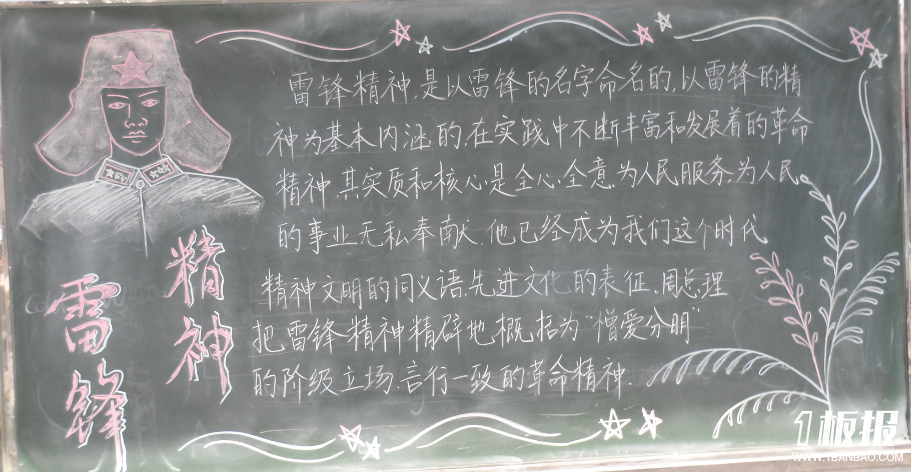 雷锋
精神
雷锋精神,是以雷锋的名字命名的,以雷锋的精
神为基本内涵的,在实践中不断丰富和发展着的革命
精神,其实质和核心是全心全意为人民服务,为人民
的事业无私奉献,他已经成为我们这个时代
精神文明的同义语,先进文化的表征.周总理
把雷锋精神精辟地概括为“憎爱分明”
的阶级立场,言行一致的革命精神.
1板报
WWW.1BANBAO.COM